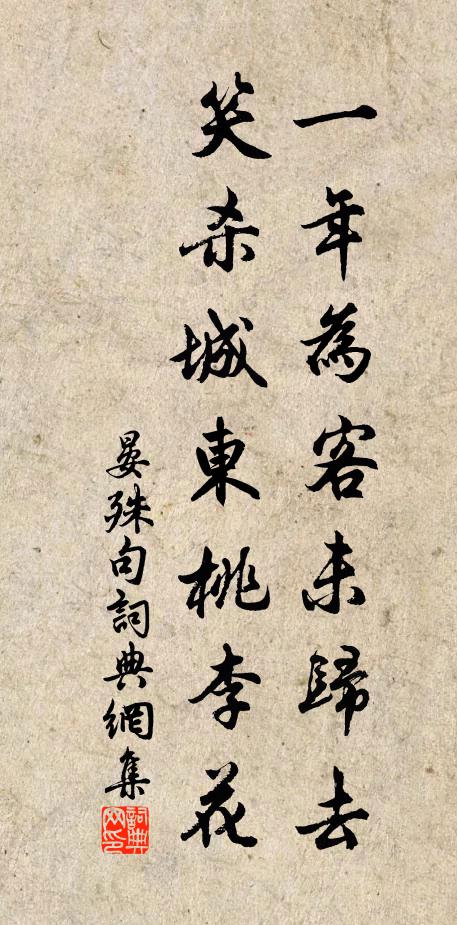 一年為客未歸去
笑杀城東桃李花
晏殊句詞典網集
詞典网印